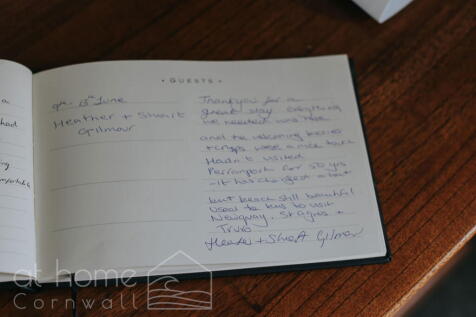 a
had
ing
GUESTS
9th - 13th June
Heather + Stuart
Gilmour
Thankyou for a
great stay everything
we needed was here
and the welcoming
+ crisps were a nice touch
Hadn't visited
Perranporth for 50 yrs
- it has changed a lot
but beach still beautiful
Used to bus to visit
Newquay, St Agnes +
Truro
Heather + Stuart Gilmour
at home
Cornwall